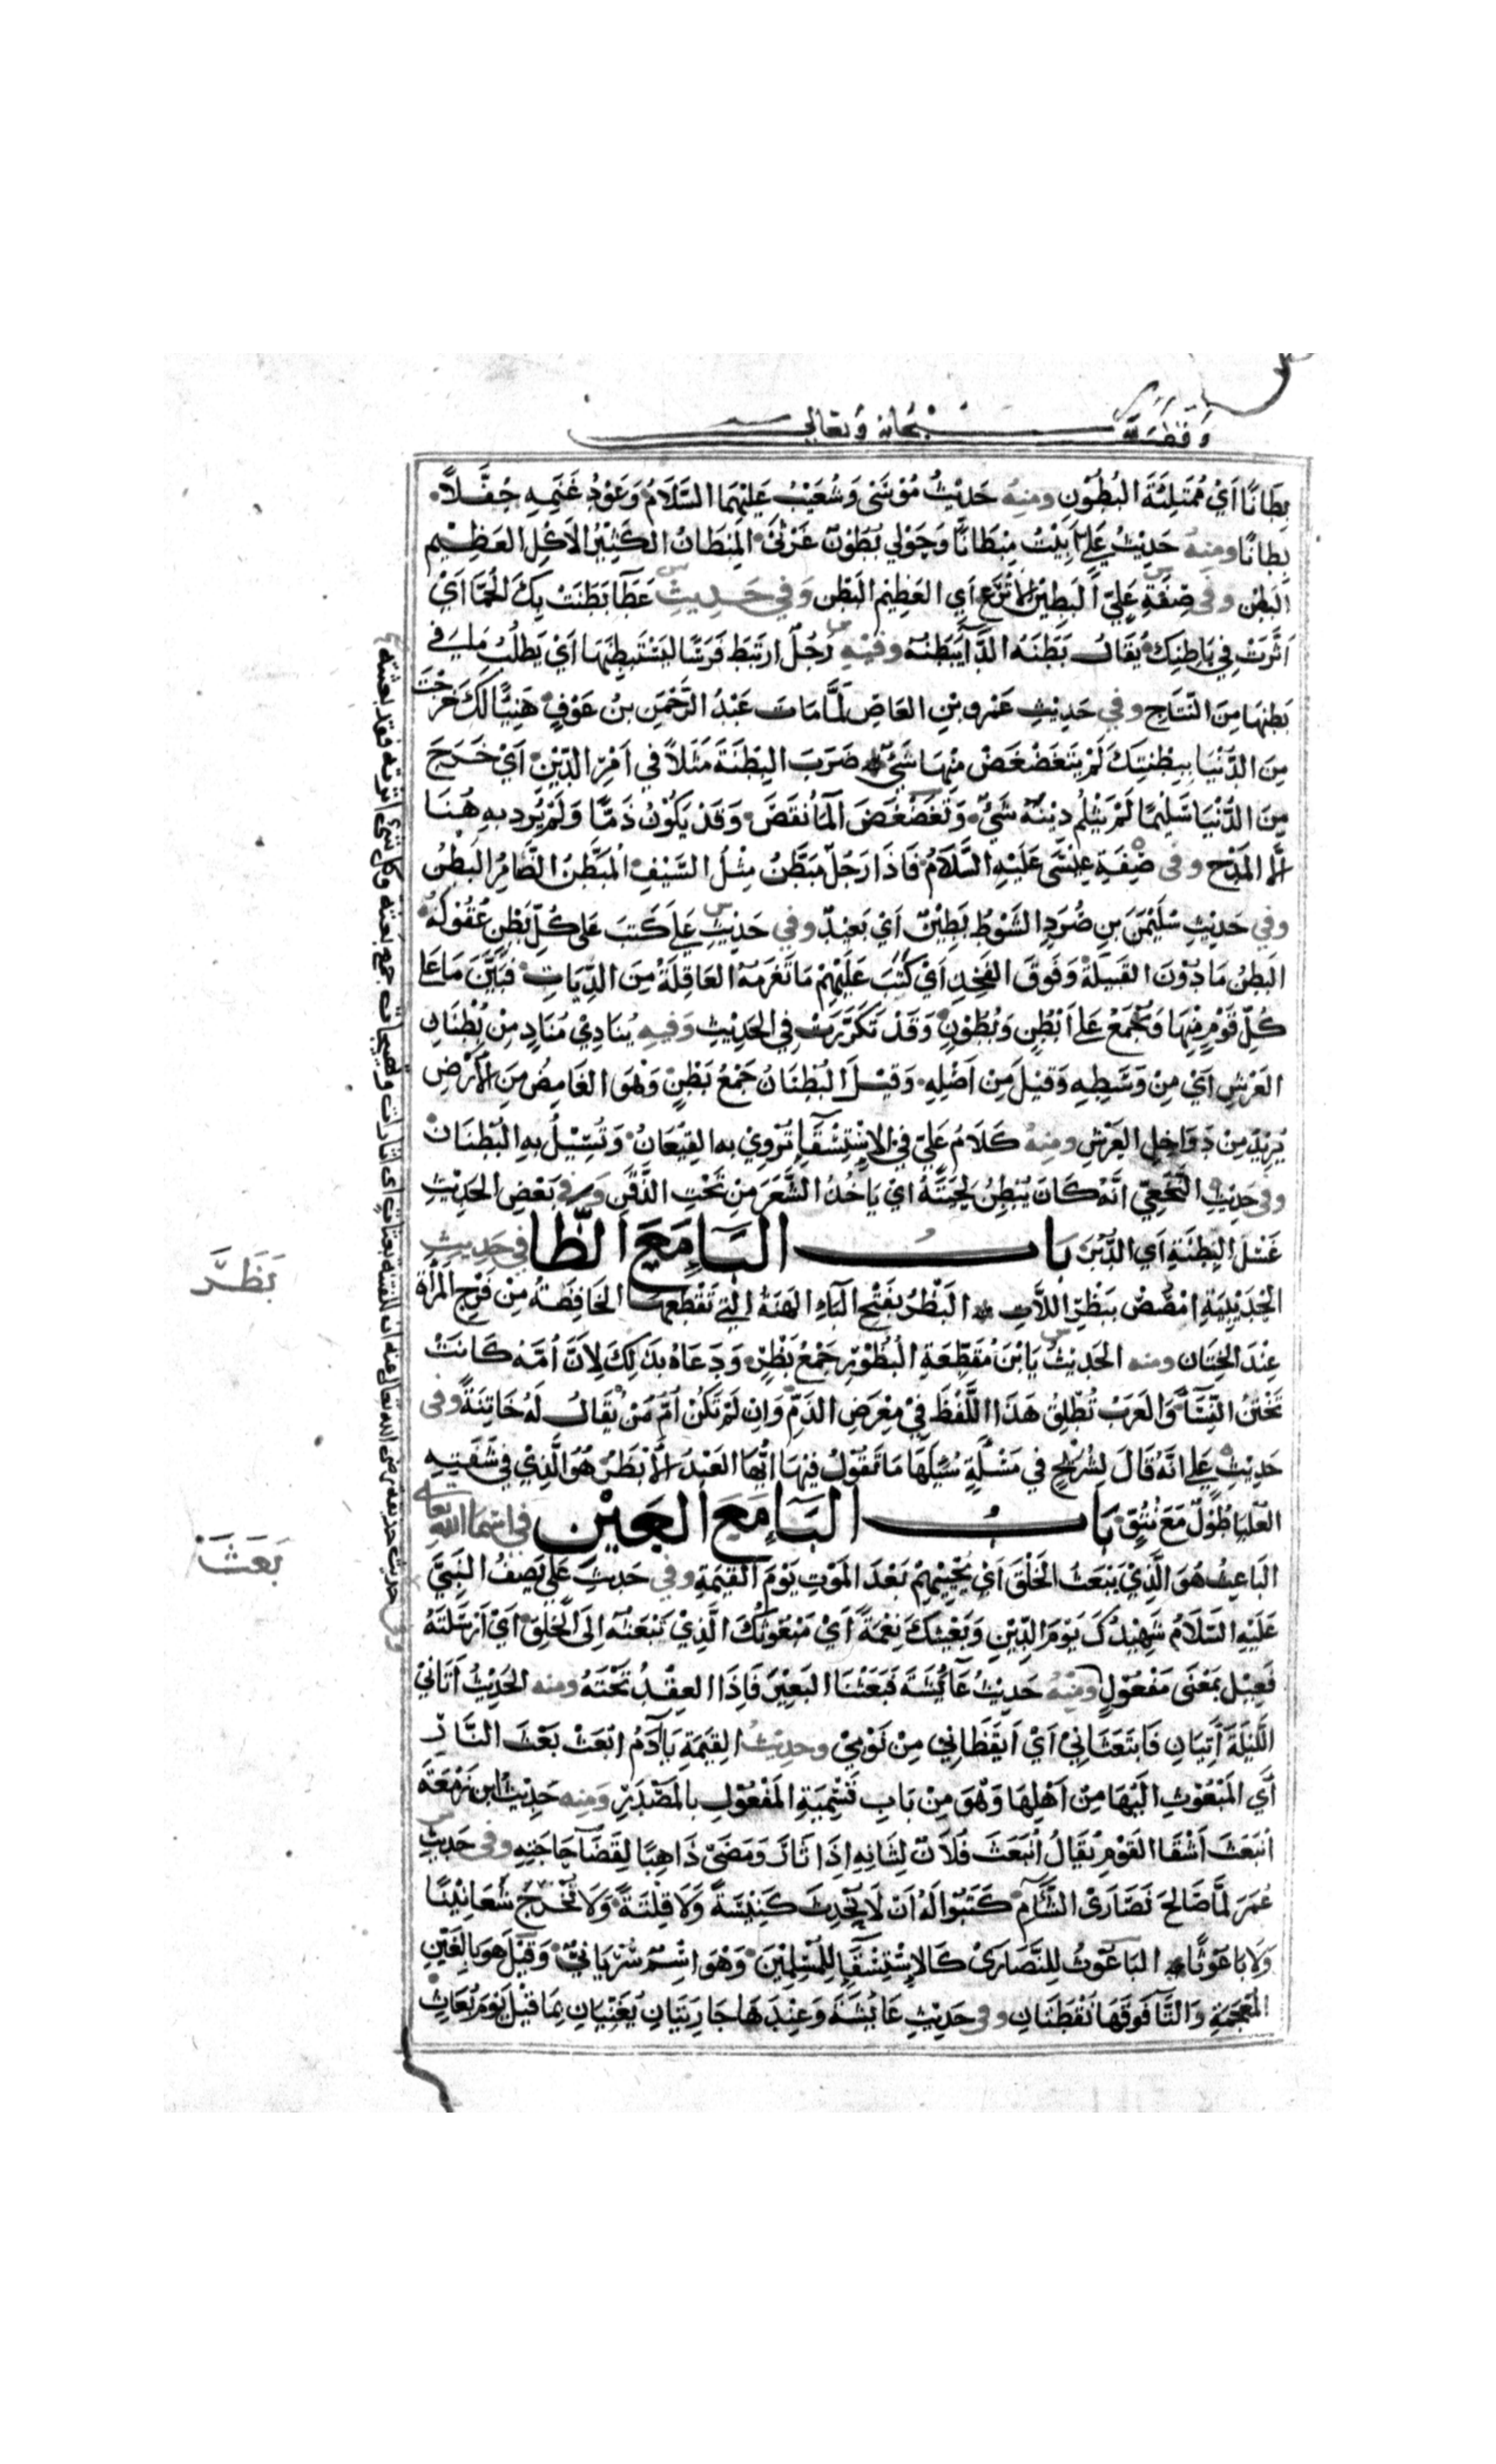 وقف لله سبحانه وتعالى
بِطَانًا اَيْ مُمْتَلِئَةَ البُطُوْنِ ومنه حَدِيْثُ مُوْسَى وَشُعَيْبُ عَلَيْهِمَا السَّلَامُ وَعَوْدُ غَنَمِهِ حُفَّلاً
بِطَانًا ومنه حَدِيْثُ عَلِيٍّ اَبِيْتُ مِبْطَانًا وَحَوْلِي بُطُوْنٌ غَرْثَى المِبْطَانُ الكَثِيْرُ الاَكْلِ العَظِيْمِ
البَطْنِ وفي صِفَةِ عَلِيٍّ البَطِيْنُ الاَنْزَعُ اَيِ العَظِيْمُ البَطْنِ وَفي حَدِيثِ عَطَا بَطَنَتْ بِكَ الحُمَّا اَيْ
اَثَّرَتْ فِي بَاطِنِكَ يُقَالُ بَطَنَهُ الدَّا يَبْطُنُهُ وفيه رَجُلٌ ارْتَبَطَ فَرَسًا لِيَسْتَبْطِنَهَا اَيْ يَطْلُبُ مَا فِي
بَطْنِهَا مِنَ النِّتَاجِ وفي حَدِيْثِ عَمْرِو بْنِ العَاصِ لَمَّا مَاتَ عَبْدُ الرَّحْمَنِ بنُ عَوْفٍ هَنِيًّا لَكَ خَرَجْتَ
مِنَ الدُّنْيَا بِبِطْنَتِكَ لَمْ يَتَغَضْغَضْ مِنْهَا شَيْءٌ ضَرَبَ البِطْنَةَ مَثَلاً في اَمْرِ الدِّيْنِ اَيْ خَرَجَ
مِنَ الدُّنْيَا سَلِيْمًا لَمْ يَثْلِمْ دِيْنَهُ شَيْءٌ وَتَغَضْغَضَ المَا نَقَصَ وَقَدْ يَكُوْنُ ذَمًّا وَلَمْ يُرِدْ بِهِ هُنَا
اِلَّا المَدْحَ وفي صِفَةِ عِيْسَى عَلَيْهِ السَّلَامُ فَاِذَا رَجُلٌ مُبَطَّنٌ مِثْلُ السَّيْفِ المُبَطَّنُ الضَّامِرُ البَطْنِ
وفي حَدِيْثِ سُلَيْمَنَ بنِ صُرَدٍ الشَّوْطُ بَطِيْنٌ اَيْ بَعِيْدٌ وفي حَدِيْثِ عَلِيٍّ كَتَبَ عَلَى كُلِّ بَطْنٍ عُقُوْلَهُ
البَطْنُ مَا دُوْنَ القَبِيْلَةِ وَفَوْقَ الفَخِذِ اَيْ كَتَبَ عَلَيْهِمْ مَا تَغْرَمُهُ العَاقِلَةُ مِنَ الدِّيَاتِ فَبَيَّنَ مَا عَلَى
كُلِّ قَوْمٍ مِنْهَا وَيُجْمَعُ عَلَى اَبْطُنٍ وَبُطُوْنٍ وَقَدْ تَكَرَّرَتْ فِي الحَدِيْثِ وَفيه يُنَادِيْ مُنَادٍ مِنْ بُطْنَانِ
العَرْشِ اَيْ مِنْ وَسَطِهِ وَقِيْلَ مِنْ اَصْلِهِ وَقِيْلَ البُطْنَانُ جَمْعُ بَطْنٍ وَهُوَ الغَامِضُ مِنَ الاَرْضِ
يُرِيْدُ مِنْ دَوَاخِلِ العَرْشِ ومنه كَلَامُ عَلِيٍّ فِي الاِسْتِسْقَا تُرْوِيْ بِهِ القِيْعَانُ وَتُسِيْلُ بِهِ البُطْنَانُ
وفي حَدِيْثِ النَّخَعِيِّ اَنَّهُ كَانَ يُبَطِّنُ لِحْيَتَهُ اَيْ يَاخُذُ الشَّعَرَ مِنْ تَحْتِ الذَّقَنِ وفي بَعْضِ الحَدِيْثِ
غَسْلُ البَطَنَةِ اَيِ الدُّبُرِ بَابُ البَاءِ مَعَ الظَّا في حَدِيثِ
الحُدَيْبِيَةِ امْصُصْ بَظْرَ اللَّاتِ البَظْرُ بِفَتْحِ البَاءِ الهَنَةُ الَّتِي تَقْطَعُهَا الخَافِضَةُ مِنْ فَرْجِ المَرْاَةِ
عِنْدَ الخِتَانِ ومنه الحَدِيْثُ يَابْنَ مُقَطِّعَةِ البُظُوْرِ جَمْعُ بَظْرٍ وَدَعَاهُ بِذَلِكَ لِاَنَّ اُمَّهُ كَانَتْ
تَخْتِنُ النِّسَا وَالعَرَبُ تُطْلِقُ هَذَا اللَّفْظَ فِيْ مَعْرِضِ الذَّمِّ وَاِنْ لَمْ تَكُنْ اُمُّ مَنْ يُقَالُ لَهُ خَاتِنَةً وفي
حَدِيْثِ عَلِيٍّ اَنَّهُ قَالَ لِشُرَيْحٍ في مَسْئَلَةٍ سُئِلَهَا مَا تَقُوْلُ فِيْهَا اَيُّهَا العَبْدُ الاَبْظَرُ هُوَ الَّذِيْ فِي شَفَتِهِ
العُلْيَا طُوْلٌ مَعَ نُتُوٍّ بَابُ البَاءِ مَعَ العَيْنِ في اسماء الله تعالى
البَاعِثُ هُوَ الَّذِيْ يَبْعَثُ الخَلْقَ اَيْ يُحْيِيْهِمْ بَعْدَ المَوْتِ يَوْمَ القِيَمَةِ وفي حَدِيْثِ عَلِيٍّ يَصِفُ النَّبِيَّ
عَلَيْهِ السَّلَامُ شَهِيْدُكَ يَوْمَ الدِّيْنِ وَبَعِيْثُكَ نِعْمَةً اَيْ مَبْعُوْثُكَ الَّذِيْ بَعَثْتَهُ اِلَى الخَلْقِ اَيْ اَرْسَلْتَهُ
فَعِيْلٌ بِمَعْنَى مَفْعُوْلٍ ومنه حَدِيْثُ عَائِشَةَ فَبَعَثْنَا البَعِيْرَ فَاِذَا العِقْدُ تَحْتَهُ ومنه الحَدِيْثُ اَتَانِيْ
اللَّيْلَةَ اٰتِيَانِ فَابْتَعَثَانِيْ اَيْ اَيْقَظَانِيْ مِنْ نَوْمِيْ وحَدِيثُ القِيَمَةِ يَا اٰدَمُ ابْعَثْ بَعْثَ النَّارِ
اَيِ المَبْعُوْثَ اِلَيْهَا مِنْ اَهْلِهَا وَهُوَ مِنْ بَابِ تَسْمِيَةِ المَفْعُوْلِ بِالمَصْدَرِ ومنه حَدِيْثُ ابْنِ زَمْعَةَ
انْبَعَثَ اَشْقَا القَوْمِ يُقَالُ انْبَعَثَ فُلَانٌ لِشَانِهِ اِذَا ثَارَ وَمَضَى ذَاهِبًا لِقَضَا حَاجَتِهِ وفي حَدِيْثِ
عُمَرَ لَمَّا صَالَحَ نَصَارَى الشَّامِ كَتَبُوا لَهُ اَنْ لَا نُحْدِثَ كَنِيْسَةً وَلَا قَلِيَّةً وَلَا نُخْرِجَ سَعَانِيْنًا
وَلَا بَاعُوْثًا البَاعُوْثُ لِلنَّصَارَى كَالاِسْتِسْقَا لِلْمُسْلِمِيْنَ وَهُوَ اسْمٌ سُرْيَانِيٌّ وَقِيْلَ هُوَ بِالغَيْنِ
المُعْجَمَةِ وَالتَّا فَوْقَهَا نُقْطَتَانِ وفي حَدِيْثِ عَائِشَةَ وَعِنْدَهَا جَارِيَتَانِ تُغَنِّيَانِ بِمَا قِيْلَ يَوْمَ بُعَاثٍ
بَظَرَ
بَعَثَ
وفي حديث حذيفة رضي الله تعالى عنه ان للفتنة بعثات اي اثارات وتهييجات جمع بعثة وكل شيء اثرته فقد بعثته